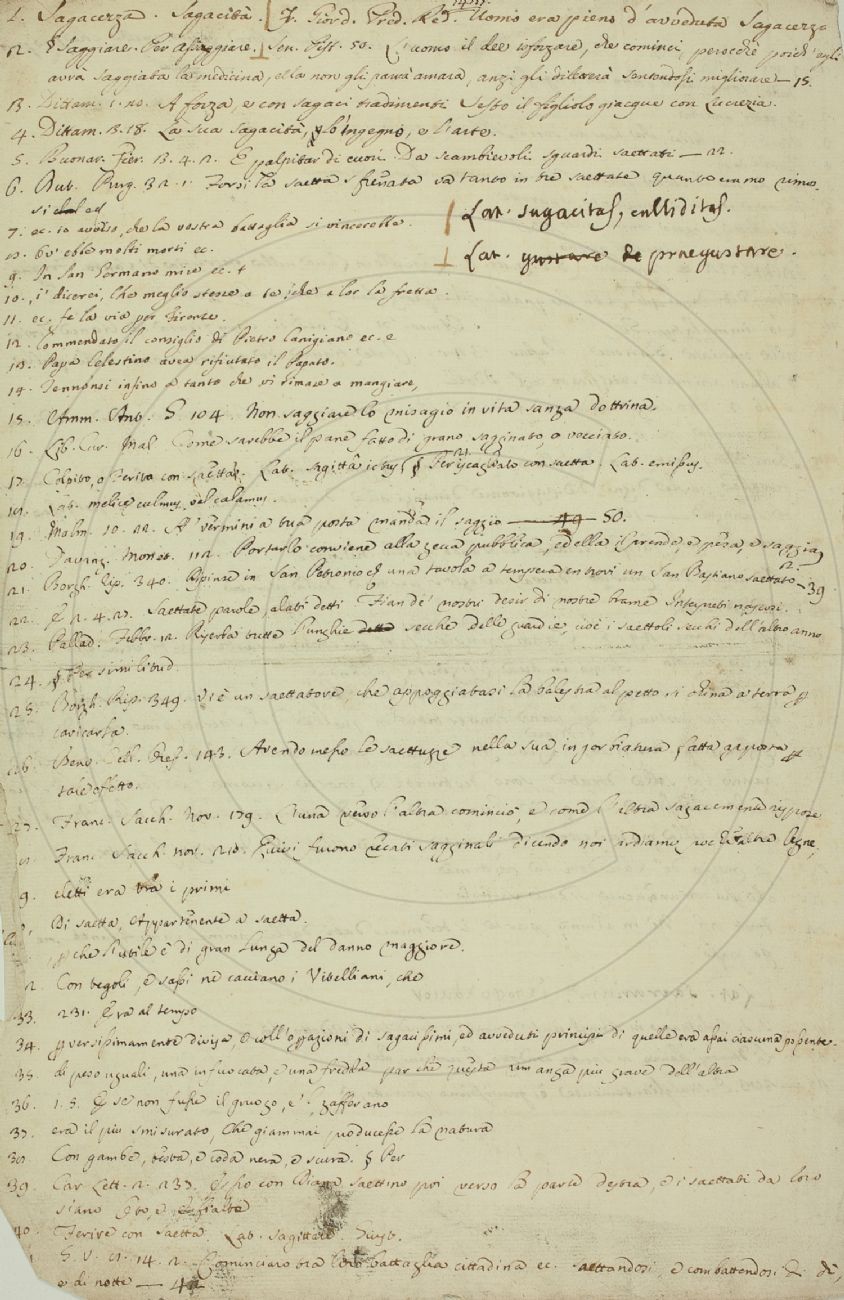 1. Sagacezza. Sagacità. Fr. Giord. Pred. Red. Uomo era pieno d'avveduta sagacezza
2. Saggiare. Per assaggiare. Sen. Pist. 50. L'uomo il dee isforzare, che cominci, perocchè poich'egli
avrà saggiata la medicina, ella non gli parrà amara, anzi gli diletterà sentendosi migliorare — 15.
3. Dittam. 1. A forza, e con sagaci tradimenti Sesto il figliolo giacque con Lucrezia.
4. Dittam. La sua sagacità, lo 'ngegno, e l'arte.
5. Buonar. Fier. 3. 4. 2. E palpitar di cuori Da scambievoli sguardi saettati — 22.
6. But. Purg. 32. 1. Forsi la saetta sfrenata va tanto in tre saettate quanto eramo rimo-
si
Lat. sagacitas, calliditas.
7. ec. io avviso, che la vostra battaglia si vincerebbe.
Lat. gustare de praegustare.
8. ebbe molti morti ec.
9. In San Germano mise ec.
10. i' dicerei, che meglio stesse a te, che a lor la fretta.
11. ec. fe la via per Firenze.
12. Commendato il consiglio di Pietro Canigiano ec. e
13. Papa Celestino avea rifiutato il Papato.
14. Tennonsi infino a tanto che vi rimase a mangiare,
15. Amm. Ant. G. 104. Non saggiare lo misagio in vita sanza dottrina.
16. Lib. Cur. Mal. Come sarebbe il pane fatto di grano sagginato, o vecciato.
17. Colpito, o ferito con saetta. Lat. sagitta ictus § Per iscagliato con saetta. Lat. emissus.
18. Lat. melicae culmus, vel calamus.
19. Malm. 10. 22. A' vermini a tua posta manda il saggio — 50.
20. Davanz. Monet. 112. Portarlo conviene alla zecca pubblica, ed ella il prende, e pesa, e saggia
21. Borgh. Rip. 340. Dipinse in San Petronio una tavola a tempera entrovi un San Bastiano saettato — 39
22. E 2. 4. 27. Saettate parole, alati detti Fian de' nostri desir di nostre brame Interpreti
23. Pallad. Febbr. 12. Riserba tutte l'unghie secche delle guardie, cioè i saettoli secchi dell'altro anno
24. § Per similitud.
25. Borgh. Rip. 349. Vi è un saettatore, che appoggiatasi la balestra al petto si china a terra p
caricarla.
26. Benv. Cell. Oref. 143. Avendo messo le saettuzze nella sua ingorbiatura fatta apposta p
tale effetto.
27. Franc. Sacch. Nov. 179. L'una verso l'altra cominciò, e come l'altra sagacemente rispose
Franc. Sacch. nov. 210. Quivi furono recati sagginali dicendo noi ardiamo poche altre legne,
9. eletti era tra i primi
Di saetta, Appartenente a saetta.
p che l'utile è di gran lunga del danno maggiore.
2. Con tegoli, e sassi ne cacciano i Vitelliani, che
33. 231. Era al tempo
34. p versissimamente divisa, e coll'oppazioni di sagacissimi, ed avveduti principi di quelle era assai ciascuna possente.
35. di peso uguali, una infuocata, e una fredda par che questa rimanga più grave dell'altra
36. 1. 8. E se non fusse il gruogo, e 'l zafferano
37. era il più smisurato, che giammai producesse la natura
38. Con gambe, testa, e coda nera, e scura. § Per
39. Car. Lett. 2. 237. con Diana saettino poi verso la parte destra, e i saettati da loro
siano
40. Ferire con saetta. Lat. sagittare.
G. V. 14. 2. Cominciaro tra loro battaglia cittadina ec. saettandosi, e combattendosi dì,
e di notte — 42